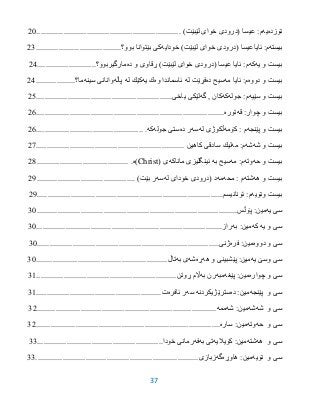 نۆزدەیەم: عیسا (درودی خوای لێبێت) ........................................ 20
بیستەم: ئایا عیسا (درودی خوای لێبێت) خودایەکی بێتوانا بوو؟ ........................................ 23
بیست و یەکەم: ئایا عیسا (درودی خوای لێبێت) رِقاوی و دەمارگیربوو؟ ........................................ 24
بیست و دووەم: ئایا مەسیح دەفرێت لە ئاسماندا وەك یەکێك لە پاڵەوانانی سینەما؟ ........................................ 24
بیست و سێیەم: جولەکەکان , گەلێکی یاخی ........................................ 25
بیست و چوار: قەتورە ........................................ 26
بیست و پێنجەم : کۆمەڵکوژی لەسەر دەستی جولەکە ........................................ 26
بیست و شەشەم: مەلیك سادقی کاهین ........................................ 27
بیست و حەوتەم: مەسیح بە ئینگلیزی ماناکەی (Christ)ە. ........................................ 28
بیست و هەشتەم : محەمەد (درودی خودای لەسەر بێت) ........................................ 29
بیست ونۆیەم: تونادیسم ........................................ 29
سی یەمین: پۆلس ........................................ 30
سی و یە کەمین: بەراز ........................................ 30
سی و دووەمین: فرەژنی ........................................ 30
سی وسێ یەمین: پێشبینی و هەرِەشەی بەتاڵ ........................................ 30
سی و چوارەمین: پێغەمبەرێ بەڵام ڕوتن ........................................ 31
سی و پێنجەمین: دەستریژیکردنە سەر ئافرەت ........................................ 31
سی و شەشەمین: شەممە ........................................ 32
سی و حەوتەمین: سارە ........................................ 32
سی و هەشتەمین: کۆیلایەتی بەفەرمانی خودا ........................................ 33
سی و نۆیەمین: هاوڕەگەزبازی ........................................ 33
37